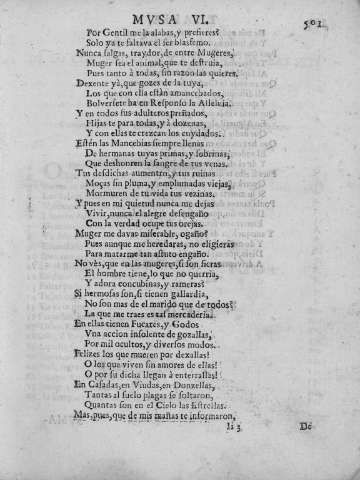 MVSA VI. 501
Por Gentil me la alabas, y prefieres?
Solo ya te faltava el ser blasfemo.
Nunca salgas, traydor, de entre Mugeres,
Muger sea el animal, que te destruia,
Pues tanto à todas, sin razon las quieres.
Dexente yà, que gozes de la tuya,
Los que con ella estàn amancebados,
Bolverseteha en Responso la Alleluia.
Y en todos sus adulteros preñados,
Hijas te para todas, y à dozenas,
Y con ellas te crezcan los cuydados.
Estén las Mancebias siempre llenas
De hermanas tuyas primas, y sobrinas,
Que deshonren la sangre de tus venas.
Tus desdichas aumenten, y tus ruinas
Moças sin pluma, y emplumadas viejas,
Mormuren de tu vida tus vezinas.
Y pues en mi quietud nunca me dejas
Vivir, nunca el alegre desengaño
Con la verdad ocupe tus orejas.
Muger me davas miserable, ogaño?
Pues aunque me heredaras, no eligieras
Para matarme tan astuto engaño.
No vès, que en las mugeres, si son fieras
El hombre tiene, lo que no querria,
Y adora concubinas, y rameras?
Si hermosas son, si tienen gallardia,
No son mas de el marido que de todos?
La que me traes es tal mercaderia.
En ellas tienen Fucares, y Godos
Vna accion insolente de gozallas,
Por mil ocultos, y diversos modos.
Felizes los que mueren por dexallas!
O los que viven sin amores de ellas!
O por su dicha llegan à enterrallas!
En Casadas, en Viudas, en Donzellas,
Tantas al suelo plagas se soltaron,
Quantas son en el Cielo las Estrellas.
Mas, pues, que de mis mañas te informaron,
Ii 3 De